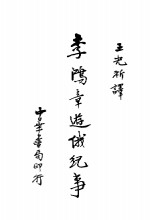 王光祈譯
李鴻章遊俄紀事
中華書局印行